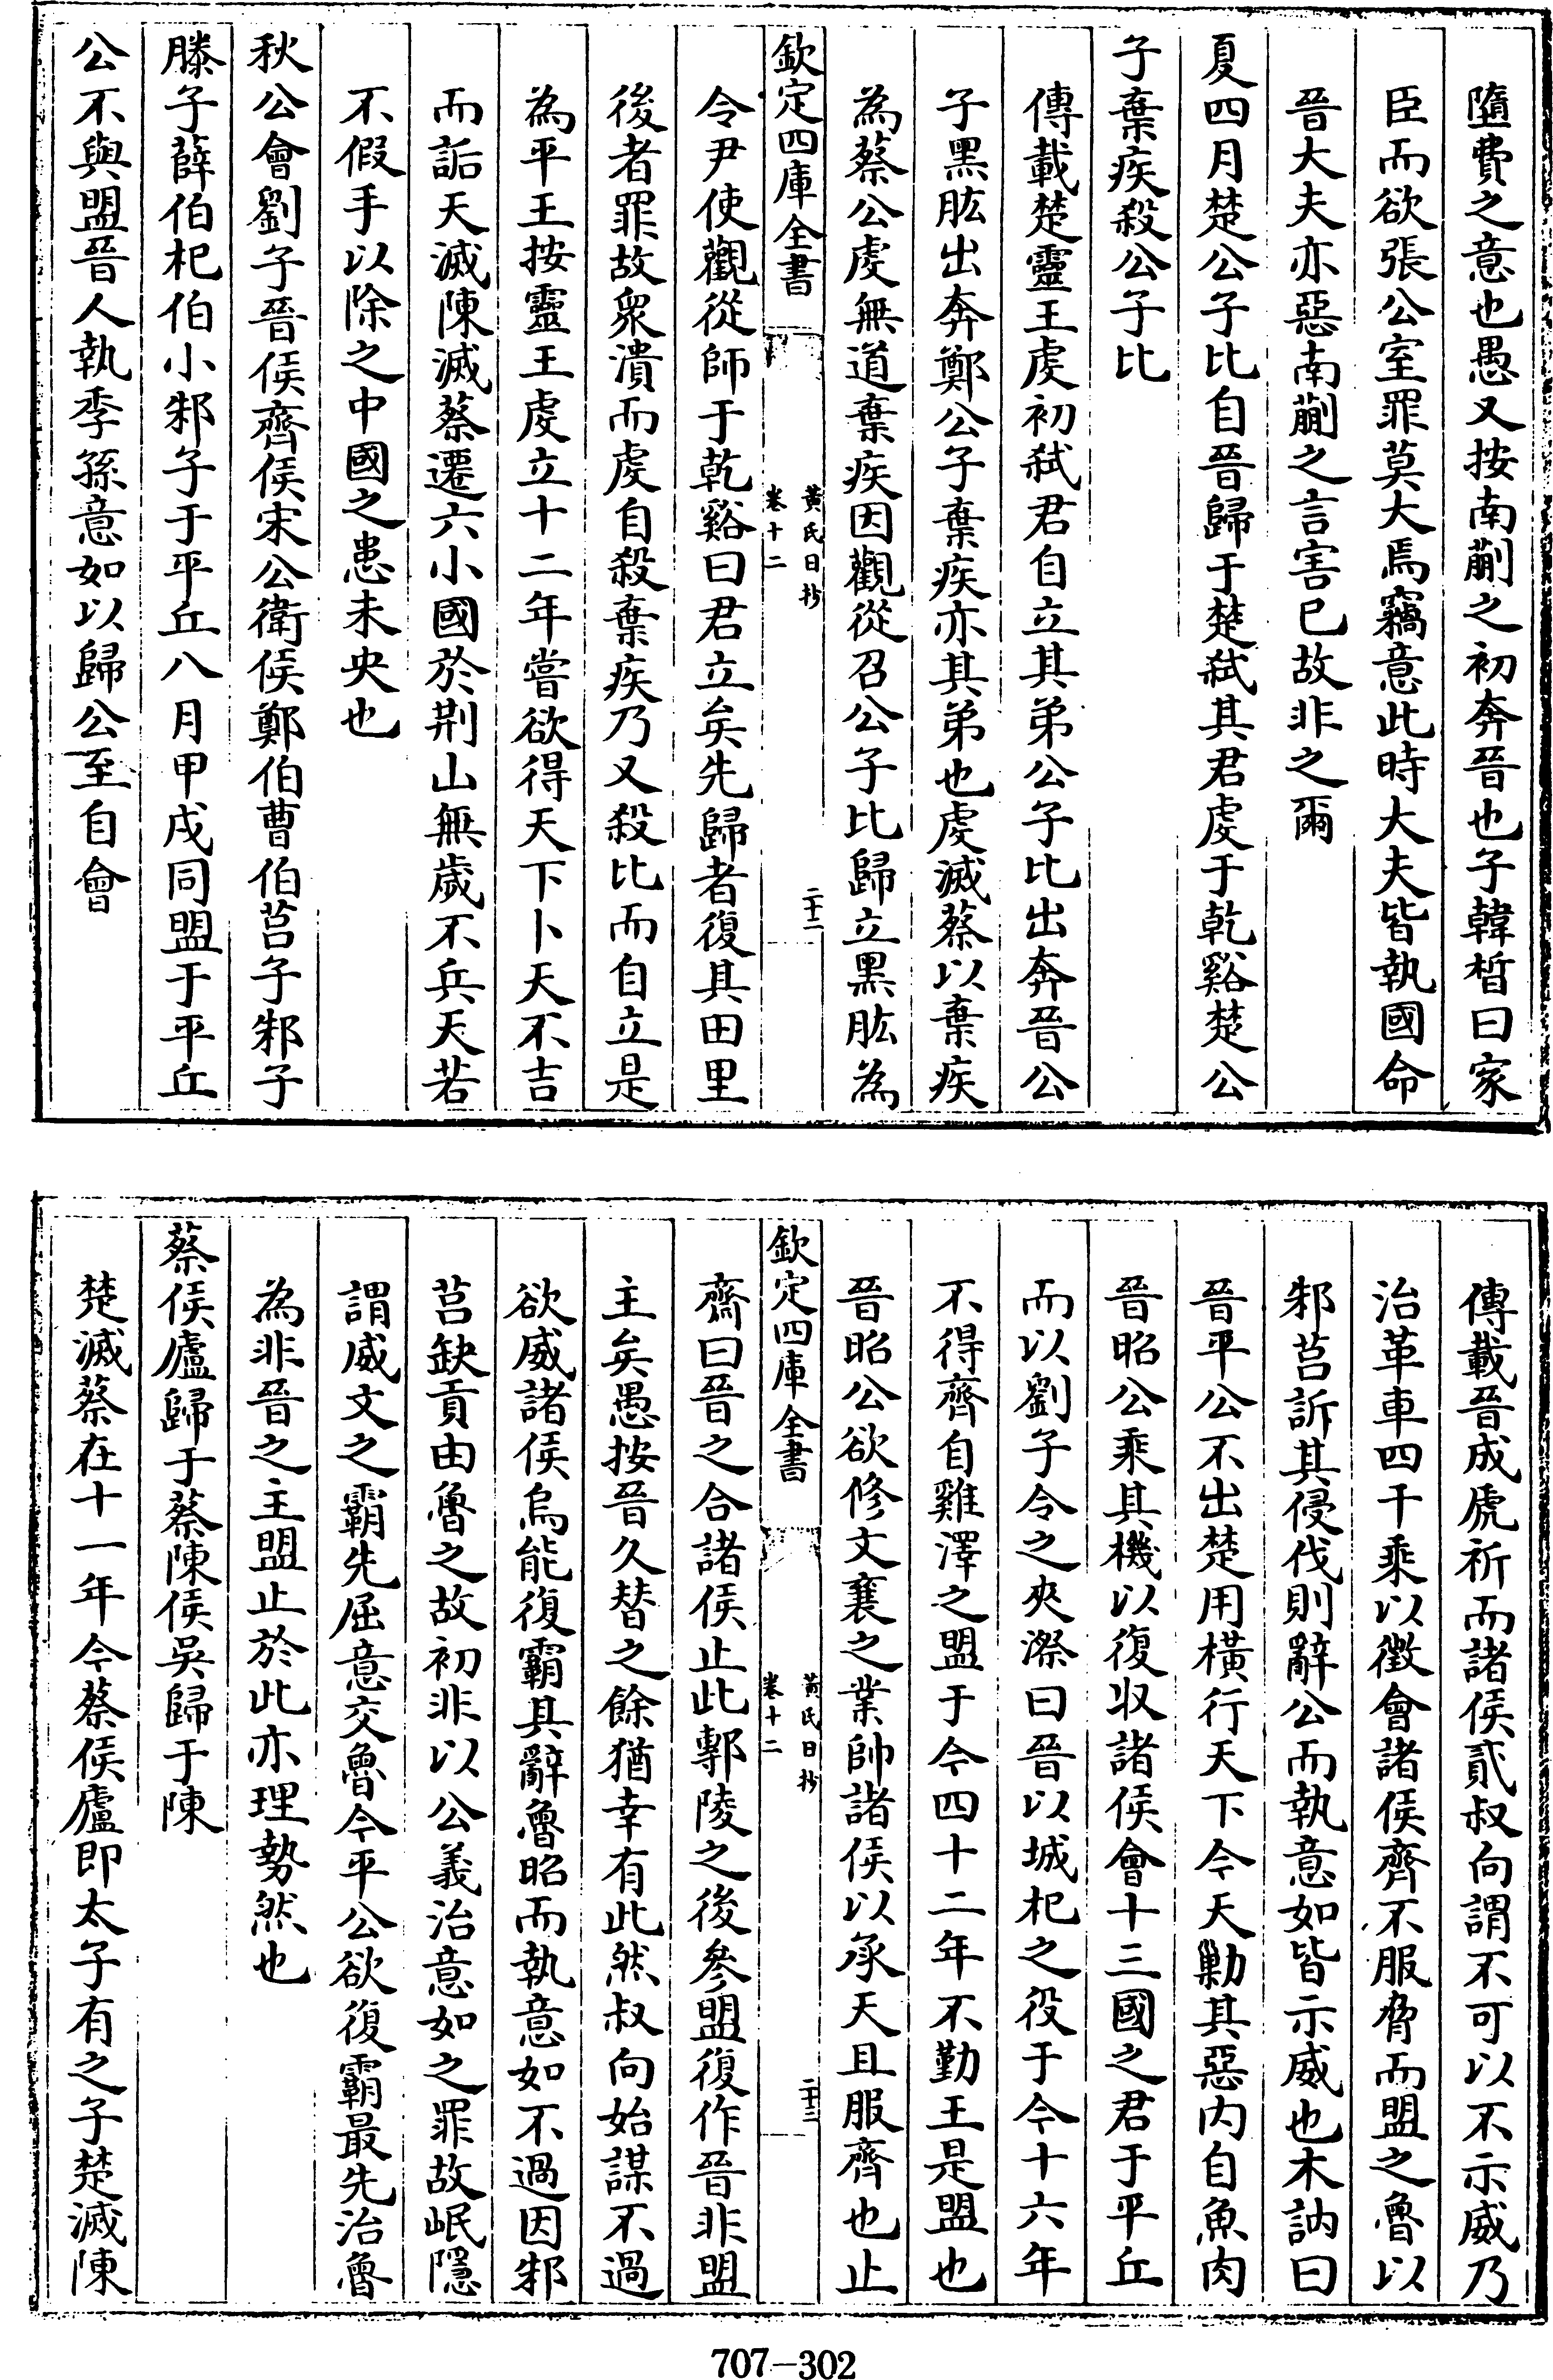 隳費之意也愚又按南蒯之初奔晉也子韓晳曰家
臣而欲張公室罪莫大焉竊意此時大夫皆執國命
晉大夫亦惡南蒯之言害已故非之爾
夏四月楚公子比自晉歸于楚弑其君虔于乾谿楚公
子棄疾殺公子比
傳載楚靈王虔初弑君自立其弟公子比出奔晉公
子黑肱出奔鄭公子棄疾亦其弟也虔滅蔡以棄疾
為蔡公虔無道棄疾因觀從召公子比歸立黑肱為
欽定四庫全書
黃氏日抄
卷十二
二十二
令尹使觀從師于乾谿曰君立矣先歸者復其田里
後者罪故衆潰而虔自殺棄疾乃又殺比而自立是
為平王按靈王虔立十二年嘗欲得天下卜天不吉
而詬天滅陳滅蔡遷六小國於荆山無歲不兵天若
不假手以除之中國之患未央也
秋公會劉子晉侯齊侯宋公衛侯鄭伯曹伯莒子邾子
滕子薛伯杞伯小邾子于平丘八月甲戌同盟于平丘
公不與盟晉人執季孫意如以歸公至自會
傳載晉成虒祈而諸侯貳叔向謂不可以不示威乃
治革車四千乘以徵會諸侯齊不服脅而盟之魯以
邾莒訴其侵伐則辭公而執意如皆示威也木訥曰
晉平公不出楚用橫行天下今天勦其惡内自魚肉
晉昭公乘其機以復収諸侯會十三國之君于平丘
而以劉子令之夾漈曰晉以城杞之役于今十六年
不得齊自雞澤之盟于今四十二年不勤王是盟也
晉昭公欲修文襄之業帥諸侯以承天且服齊也止
欽定四庫全書
黃氏日抄
卷十二
二十三
齋曰晉之合諸侯止此鄟陵之後參盟復作晉非盟
主矣愚按晉久替之餘猶幸有此然叔向始謀不過
欲威諸侯烏能復霸其辭魯昭而執意如不過因邾
莒缺貢由魯之故初非以公義治意如之罪故岷隱
謂威文之霸先屈意交魯今平公欲復霸最先治魯
為非晉之主盟止於此亦理勢然也
蔡侯廬歸于蔡陳侯吳歸于陳
楚滅蔡在十一年今蔡侯廬即太子有之子楚滅陳
707-302